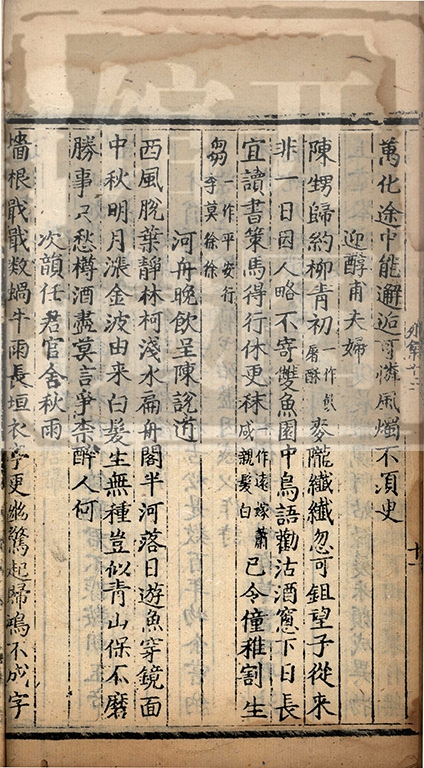 萬化途中能邂逅可憐風燭不須臾
迎醇甫夫婦
陳甥歸約柳青初一作乾屠酥麥隴纖纖忽可鉏望子從来
非一日因人略不寄雙魚園中鳥語勸沽酒窻下日長
宜讀書策馬得行休更秣一作遠嫁蕭咸親髮白已令僮稚割生
芻一作平安行李莫徐徐
河舟晚飲呈陳說道
西風脫葉靜林柯淺水扁舟閣半河落日遊魚穿鏡面
中秋明月漲金波由来白髮生無種豈似青山保不磨
勝事只愁樽酒盡莫言爭柰醉人何
次韻任君官舍秋雨
墻根戢戢数蝸牛雨長垣衣亭更幽驚起歸鴻不成字